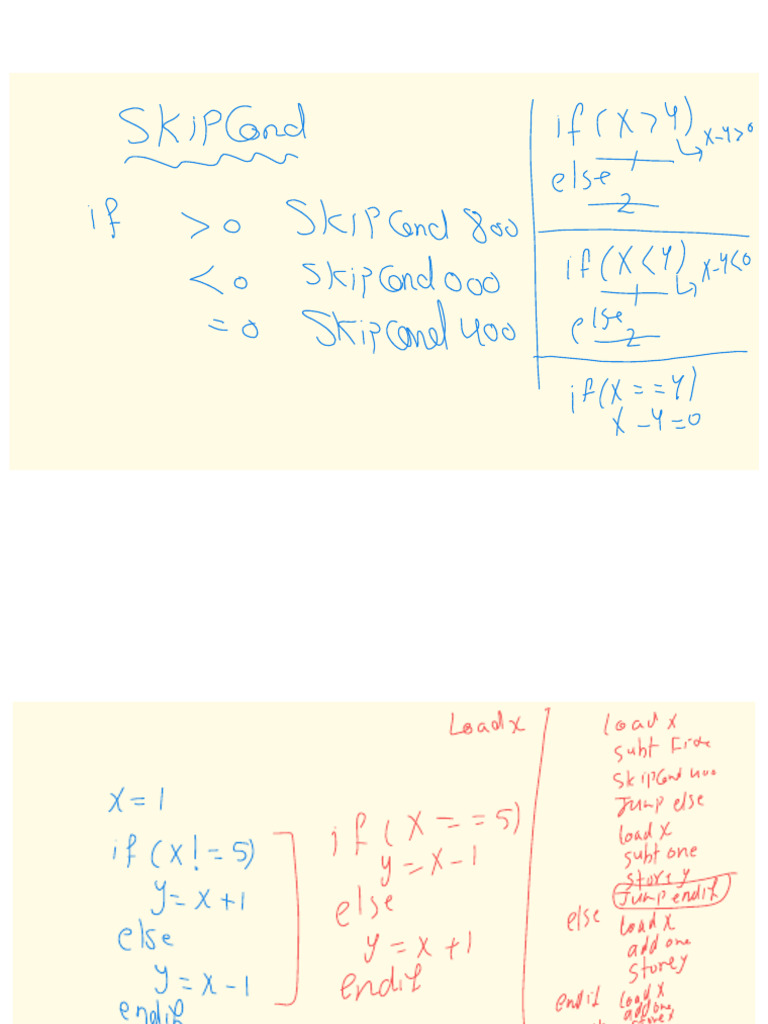 SKipCond
if >0 SKipCond 800
<0 SKipCond 000
=0 SKipCond 400
if (X>Y)
X-Y>0
1
else
2
if (X<Y)
X-Y<0
1
else
2
if (X==Y)
X-Y=0
X=1
if (X!=5)
y=X+1
else
y=X-1
endif
if (X==5)
y=X-1
else
y=X+1
endif
Load x
load x
subt Five
SkipCond 400
Jump else
load x
subt one
store y
Jump endif
else load x
add one
store y
endif load x
add one
store x